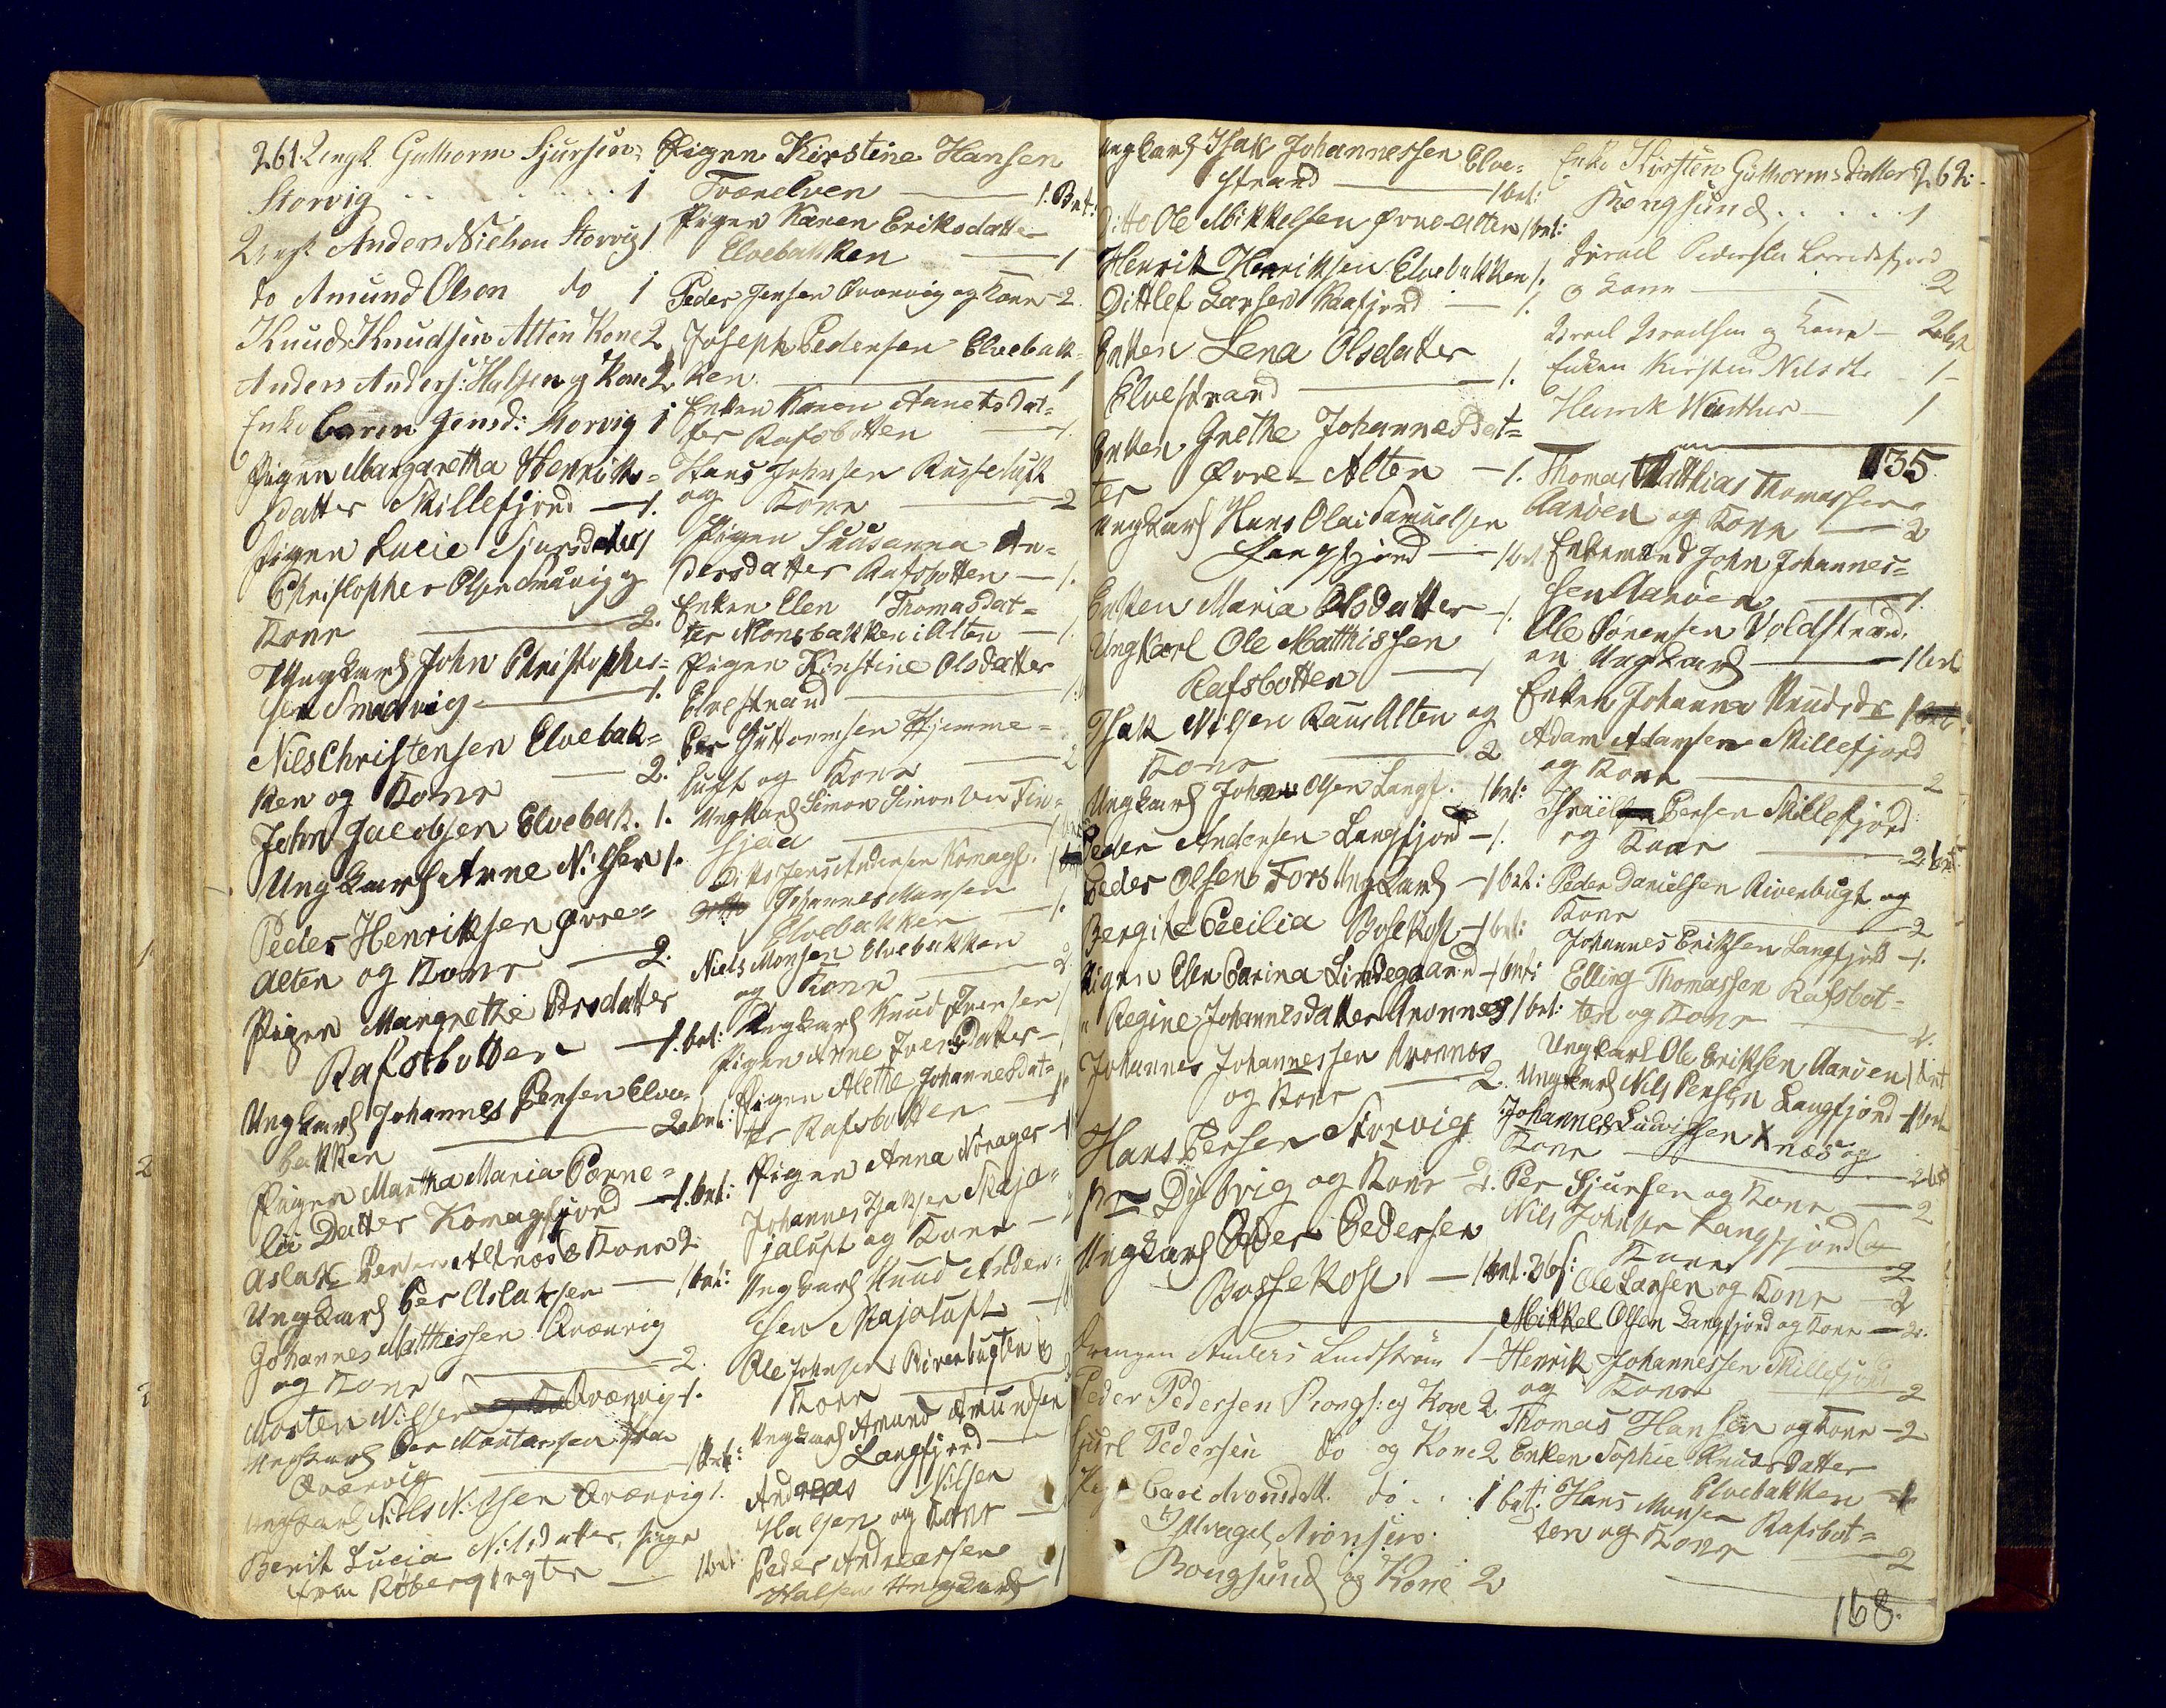 261. Ungk. Guthorm Sjursen
Storvig . . . . . . . . 1
Ungk Anders Nielsen Storvig 1
do Amund Olsen do 1
Knud Knudsen Alten Kone 2
Anders Anders: Halsen og Kone 2
Enke Karen Jensd: Storvig 1
Pigen Margaretha Henriks=
datter Skillefjord — 1.
Pigen Lucie Sjursdatter 1
Christopher Olsen Smavig og
Kone — 2.
Ungkarl John Christopher=
sen Smavig — 1.
Nils Christensen Elvebak=
ken og Kone — 2.
John Jacobsen Elvebak. 1.
Ungkarl Arne Nilsen 1.
Peder Henriksen Øvre=
Alten og Kone — 2.
Pigen Margrethe Persdatter
Rafsbotten — 1. bnt:
Ungkarl Johannes Persen Elve=
bakken — 2. bnt:
Pigen Martha Maria Corne=
lii Datter Komagfjord — 1. bnt:
Aslak Persen Altnæs & Kone 2
Ungkarl Per Aslaksen — 1 bnt:
Johannes Matthissen Qvænvig
og Kone — 2.
Morten Nilsen Qvænvig 1.
Ungkarl Per Mortensen fra
Qvænvig — 1 bnt:
Ungkarl Nils Nilsen Qvænvig 1.
Berit Lucia Nilsdatter, Pige
fra Røberg — 1 bnt:
Pigen Kirstine Hansen
Tværelven — 1. Bnt:
Pigen Karen Eriksdatter
Elvebakken — 1
Peder Jensen Qvænvig og Kone — 2
Joseph Pedersen Elvebak=
ken — 1
Enken Karen Anetsdat=
ter Rafsbotten — 1.
Hans Johnsen Russeluft
og Kone — 2
Pigen Susanna An=
dersdatter Rafsbotten — 1.
Enken Elen Thomasdat=
ter Monsbakken i Alten — 1.
Pigen Kirstine Olsdatter
Elvestrand — 1.
Per Guttormsen Hjemme=
luft og Kone — 2
Ungkarl Simon Simonsen Tin=
fjeld
Ditto Jens Andersen Komagf. 1
Johannes Monsen
Elvebakken — 1.
Niels Monsen Elvebakken
og Kone — 2
Ungkarl Knud Iversen
Pigen Anne Iversdatter —
Pigen Alethe Johannesdat=
ter Rafsbotten — 1
Pigen Anna Norager — 1
Johannes Isaksen Skaja=
jaluft og Kone —
Ungkarl Knud Ander=
sen Skajaluft —
Ole Johnsen Rivenbugten &
Kone
Ungkarl Amund Amundsen
Langfjord —
Andreas Nilsen
Halsen og Kone —
Peder Andreassen
Halsen Ungkarl
Ungkarl Isak Johannessen Elve=
strand — 1 bnt:
Ditto Ole Mikkelsen Øvre-Alten 1 bnt:
Henrik Henriksen Elvebakken 1.
Dittlef Larsen Kaafjord — 1.
Enken Lena Olsdatter
Elvestrand — 1.
Enken Grethe Johannesdat=
ter Øvre-Alten — 1.
Ungkarl Hans Olai Samuelsen
Langfjord — 1 bnt.
Enken Maria Olsdatter — 1.
Ungkarl Ole Matthissen
Rafsbotten — 1
Isak Nilsen Raus Alten og
Kone — 2
Ungkarl Johan Olsen Langf. 1 bnt:
Peder Andersen Langfjord — 1.
Peder Olsen Fors Ungkarl — 1 bnt:
Bergite Cecilia Bosekop — 1 bnt:
Pigen Elen Carina Lindegaard — 1 bnt:
Regine Johannesdatter Aronnes 1 bnt:
Johannes Johannessen Aronnes
og Kone — 2.
Hans Persen Storvig
Dybvig og Kone 2.
Ungkarl Peder Pedersen
Bossekop — 1 bnt.
Drengen Anders Lundstrøm 1
Peder Pedersen Kongs: og Kone 2
Pedersen do og Kone 2
Cari Aronsdatt. do . . 1 bnt:
Aronsen
Bongsund og Kone 2
Enke Kirsten Guthormsdatter 262.
Kongsund . . . . . 1
Israel Pedersen Lerredsfjord
& Kone — 2
Israel Israelsen og Kone — 2 bnt
Enken Kirsten Nilsdtr — 1
Henrik Winther — 1
135
Thomas Matthias Thomassen
Aarøen og Kone — 2
Enkemand John Johannes=
sen Aarøen — 1.
Ole Sørensen Voldstrand,
en Ungkarl — 1 bnt
Enken Johanna Knudsdr 1
Adam Adamsen Skillefjord
og Kone — 2
Israel Persen Skillefjord
og Kone — 2 bnt
Peder Danielsen Rivenbugt og
Kone — 2
Johannes Eriksen Langfjord — 1.
Elling Thomassen Rafsbot=
ten og Kone — 2.
Ungkarl Ole Eriksen Aarøen 1 bnt
Ungkarl Nils Persen Langfjord 1 bnt
Johannes Ludvigsen Knæs og
Kone — 2 bnt
Per Sjursen og Kone — 2
Nils Johnsen Langfjord og
Kone — 2
Ole Larsen og Kone — 2
Mikkel Olsen Langfjord og Kone — 2.
Henrik Johannessen Skillefjord
og Kone — 2
Thomas Hansen og Kone — 2
Enken Sophie Knudsdatter
Elvebakken — 1
Hans Monsen Rafsbot=
ten og Kone — 2
168.